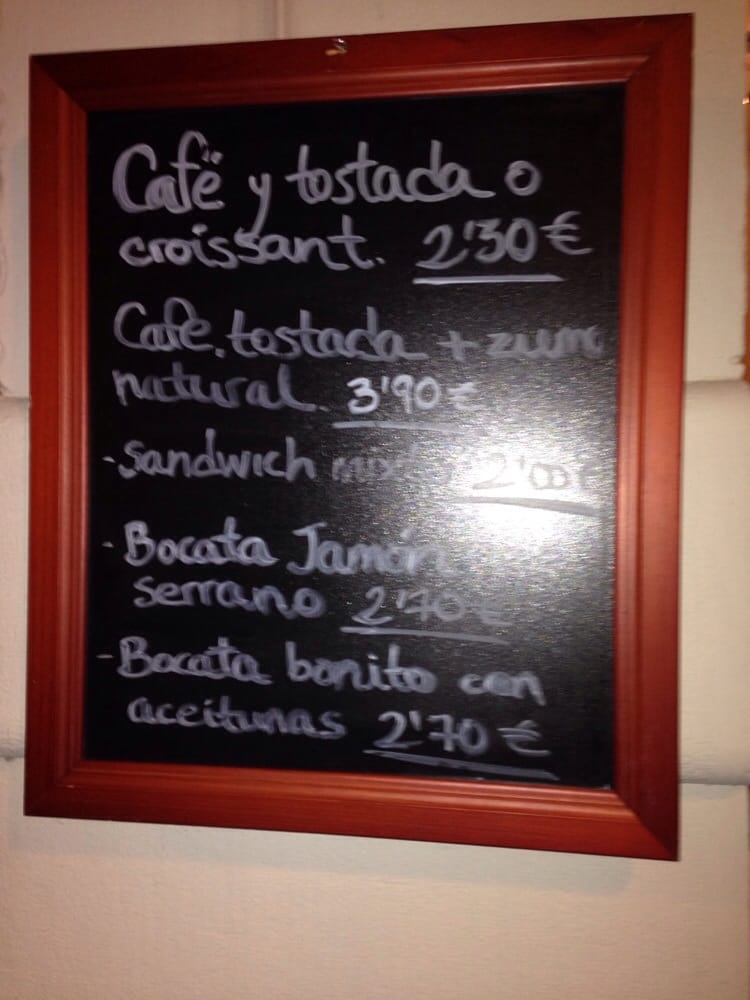 Café y tostada o
croissant. 2'30€
Cafe, tostada + zumo
natural. 3'90€
- Sandwich mixto 2'00€
- Bocata Jamón
serrano 2'70€
- Bocata bonito con
aceitunas 2'70€